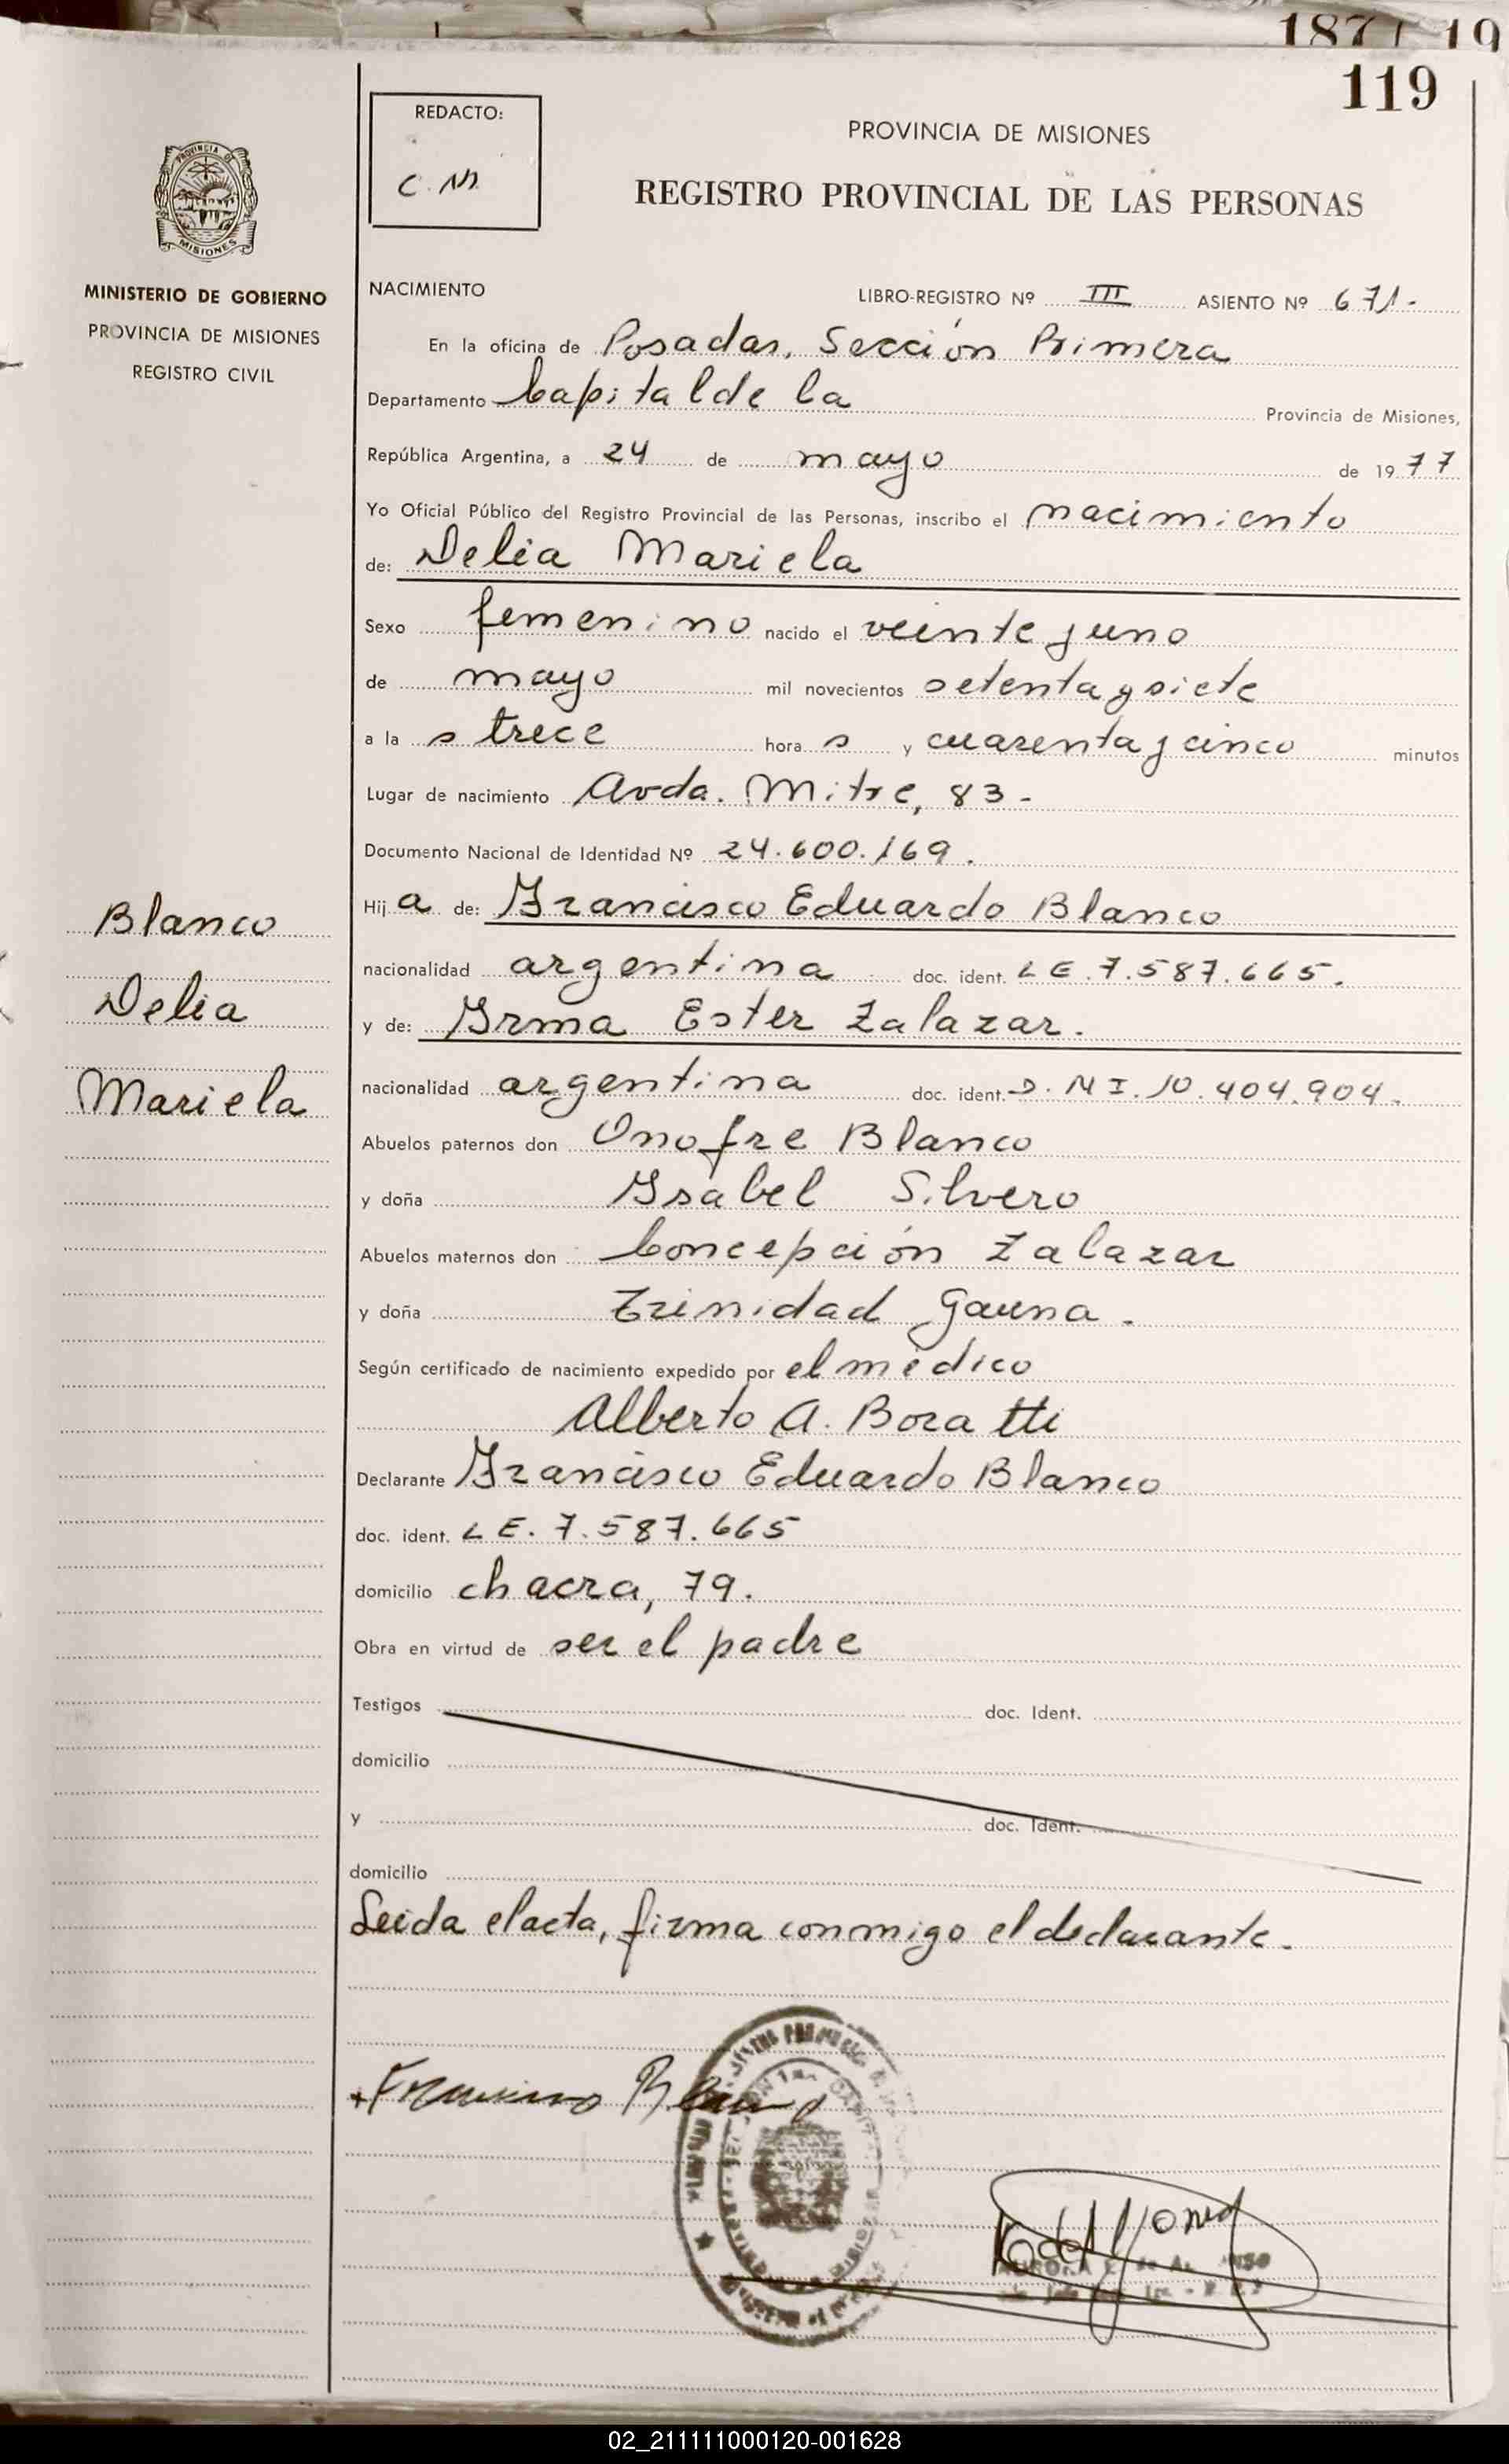 187 19
119
REDACTO:
C. M.
PROVINCIA DE MISIONES
REGISTRO PROVINCIAL DE LAS PERSONAS
PROVINCIA DE
MISIONES
MINISTERIO DE GOBIERNO
PROVINCIA DE MISIONES
REGISTRO CIVIL
NACIMIENTO
LIBRO-REGISTRO Nº III ASIENTO Nº 671.-
En la oficina de Posadas, Sección Primera
Departamento Capital de la Provincia de Misiones,
República Argentina, a 24 de mayo de 1977
Yo Oficial Público del Registro Provincial de las Personas, inscribo el nacimiento
de: Delia Mariela
Sexo femenino nacido el veinte y uno
de mayo mil novecientos setenta y siete
a la s trece hora s y cuarenta y cinco minutos
Lugar de nacimiento Avda. Mitre, 83-
Documento Nacional de Identidad Nº 24.600.169.
Hij a de: Francisco Eduardo Blanco
nacionalidad argentina doc. ident. L E. 7.587.665.
y de: Irma Ester Zalazar.
nacionalidad argentina doc. ident. D. N I. 10.404.904.
Abuelos paternos don Onofre Blanco
y doña Isabel Silvero
Abuelos maternos don Concepción Zalazar
y doña Trinidad Gauna.
Según certificado de nacimiento expedido por el médico
Alberto A. Boratti
Declarante Francisco Eduardo Blanco
doc. ident. L E. 7.587.665
domicilio chacra, 79.
Obra en virtud de ser el padre
Testigos doc. Ident.
domicilio
y doc. Ident.
domicilio
Leida el acta, firma conmigo el declarante.
Blanco
Delia
Mariela
Francisco Blanco
02_211111000120-001628